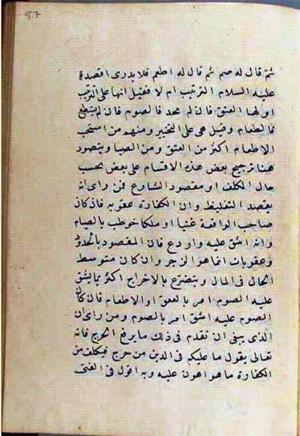 ٩٧
ثم قال له صم ثم قال له اطعم فلا يدرى اقصد
عليه السلام الترتيب ام لا فقيل انها على الترتيب
اولها العتق فان لم يجد فالصوم فان لم يستطع
فالطعام وقيل هى على التخيير ومنهم من استحب
الاطعام اكثر من العتق ومن الصيام ويتصور
هنا ترجيح بعض هذه الاقسام على بعض بحسب
حال المكلف او مقصود الشارع فمن راى انه
يقصد التغليظ وان الكفارة عقوبة فاذا كان
صاحب الواقعة غنيا او ملكا خوطب بالصيام
فانه اشق عليه واردع فان المقصود بالحدود
والعقوبات انما هو الزجر وان كان متوسط
الحال فى المال ويتضرر بالاخراج اكثر مما يشق
عليه الصوم امر بالعتق او الاطعام فان كان
الصوم عليه اشق امر بالصوم ومن راى ان
الذى ينبغى ان تقدم فى ذلك ما يرفع الحرج فانه
تعالى يقول ما عليكم فى الدين من حرج فيكلف من
الكفارة ما هو اهون عليه وبه اقول فى الفتى